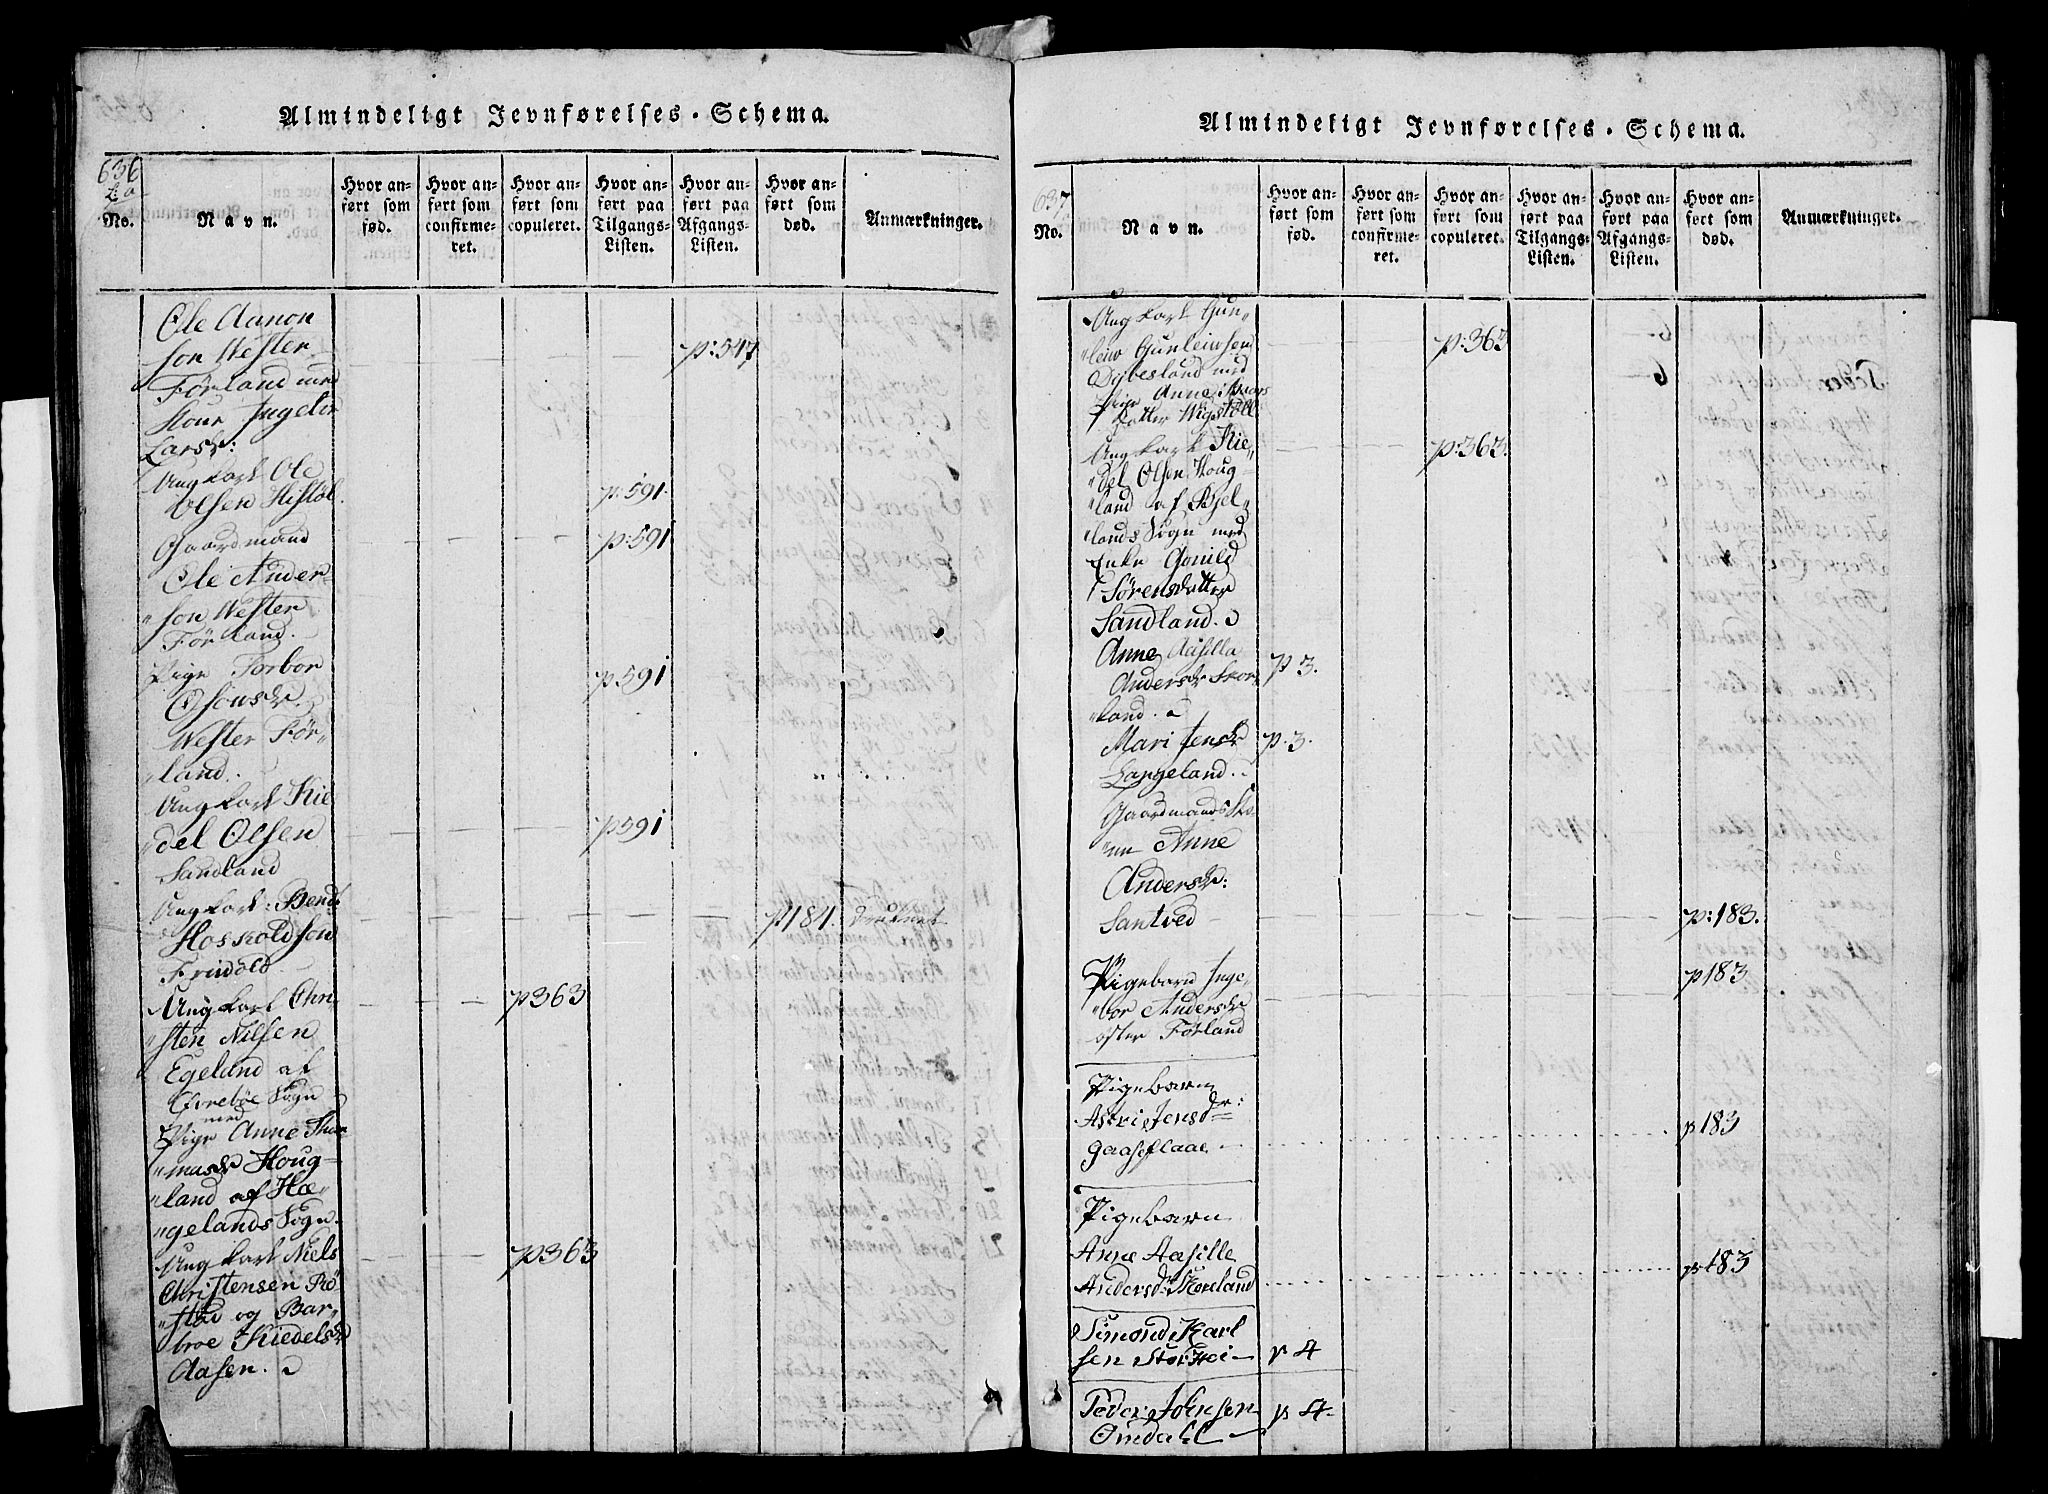 Almindeligt Jevnførelses-Schema.
636
No.
Navn.
Hvor anført som fød.
Hvor anført som confirmeret.
Hvor anført som copuleret.
Hvor anført paa Tilgangs-Listen.
Hvor anført paa Afgangs-Listen.
Hvor anført som død.
Anmærkninger.
Ole Aanon
son Wester
Förland med
Kone Ingebor
Larsdr:
p:547
Ung karl Ole
Olsen
p:591.
Gaardmand
Ole Ander-
"son Wester
Förland.
p:591
Pige Torbor
Wester För-
"land.
p591
Ung karl Kie
"del Olsen
Sandland
p591
Ung karl: Bend
Hoskoldson
Frivold
p184. druknet
Ung karl Chri
sten Nilsen
Egeland af
Evreböe Sogn
med
Pige Anne Thom
"masdr Houg-
"land af Hæ-
"gelands Sogn.
p363
Ung karl Niels
Christensen Rö-
"stad og Bar-
broe Kiedelsdr
Aasen.
p363
Almindeligt Jevnførelses-Schema.
637
No.
Navn.
Hvor anført som fød.
Hvor anført som confirmeret.
Hvor anført som copuleret.
Hvor anført paa Tilgangs-Listen.
Hvor anført paa Afgangs-Listen.
Hvor anført som død.
Anmærkninger.
Ung karl Gun-
"leiv Gunleivsen
Dybesland med
Pige Anne
datter Wigstöll
p:363
Ung karl Kie-
"del Olsen Houg-
"land af
"lands Sogn med
Enke Gonild
Sörensdatter
Sandland.
p:363.
Anne Aasilla
Andersdr Skor-
"land.
p 3.
Mari Jensdr
Langeland.
p. 3.
Gaardmands Ko-
"ne Anne
Andersdr:
Santved
p:183.
Pigebarn Inge-
"bor Andersdr
öster Förland
p183
Pigebarn
Astri Jensdr:
Gaaseflaae
p183
Pigebarn
Anne Aasille
Andersdr Skoreland
p183
Simond Karl
sen Storhei
p 4
Peder Johnsen
Omdahl
p 4.